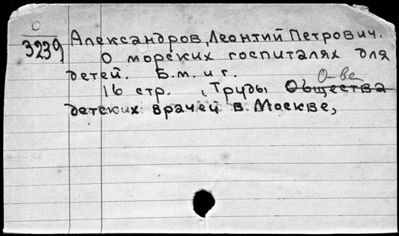 О
3239
Александров, Леонтий Петрович.
О морских госпиталях для
детей. Б.м. и г.
О-ве
16 стр. , Труды Общества
детских врачей в Москве,